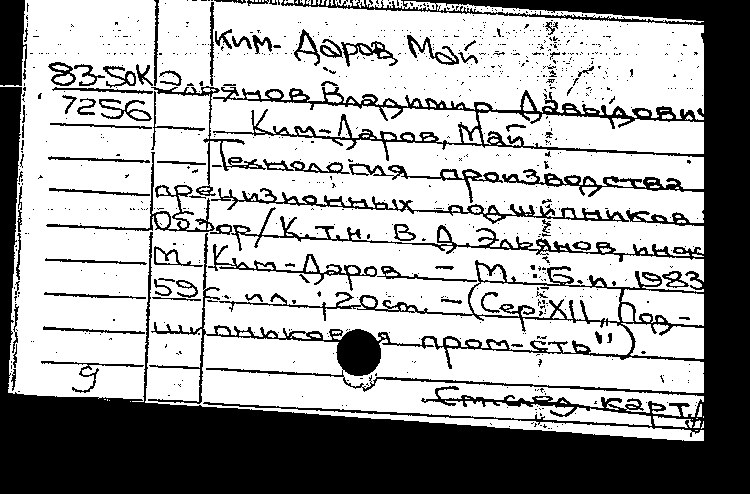 Ким-Даров, Май
83-50К Эльянов, Владимир Давыдович
7256 Ким-Даров, Май.
Технология производства
прецизионных подшипников:
Обзор/К.т.н. В.Д. Эльянов, инж
М. Ким-Даров. - М.: Б.и. 1983
59с., ил.; 20см. - (Сер XII „Под-
шипниковая пром-сть").
9
См.след. карт.